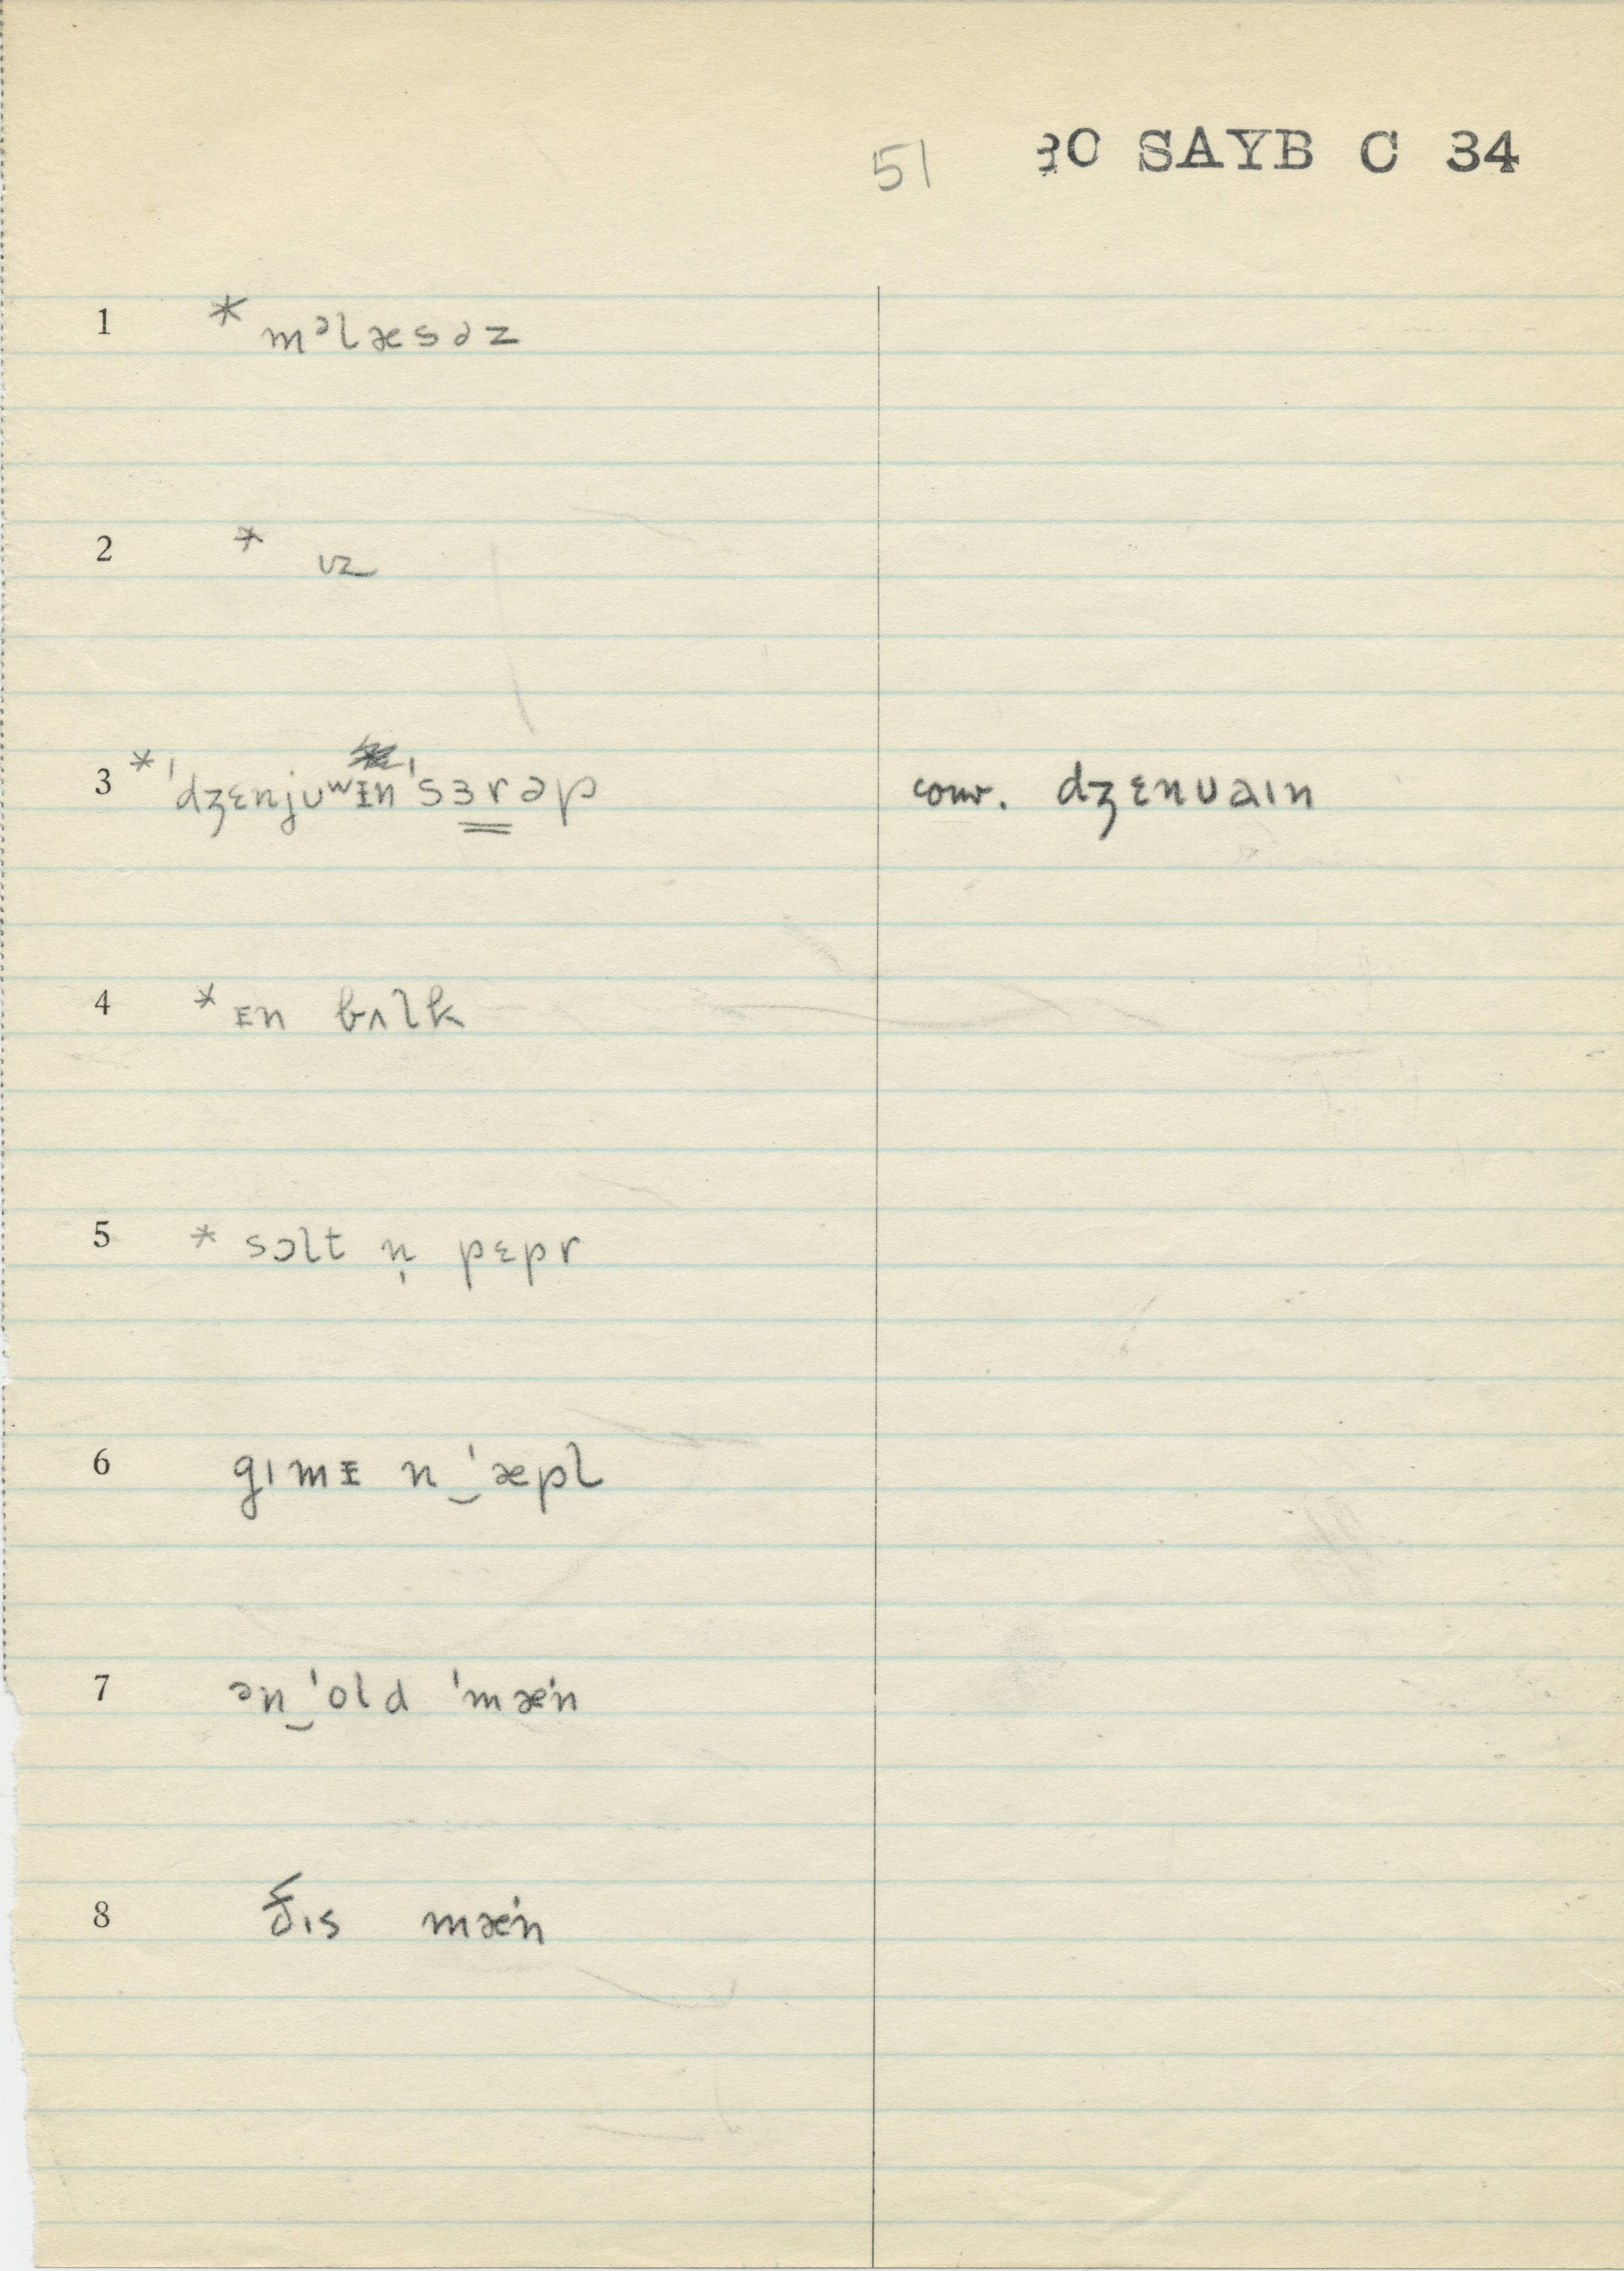 51 30 SAYB C 34
1 * mᵊlæsəz
2 * ɪz
3 * ˈdʒɛnjuʷᵻnˈsɜrəp conv. dʒɛnuaɪn
4 * ᴇn bʌlk
5 * sɔlt n̩ pɛpr
6 gɪmᵻ n‿ˈæpl
7 ən‿ˈold ˈmæˑn
8 ðɪs mæˑn